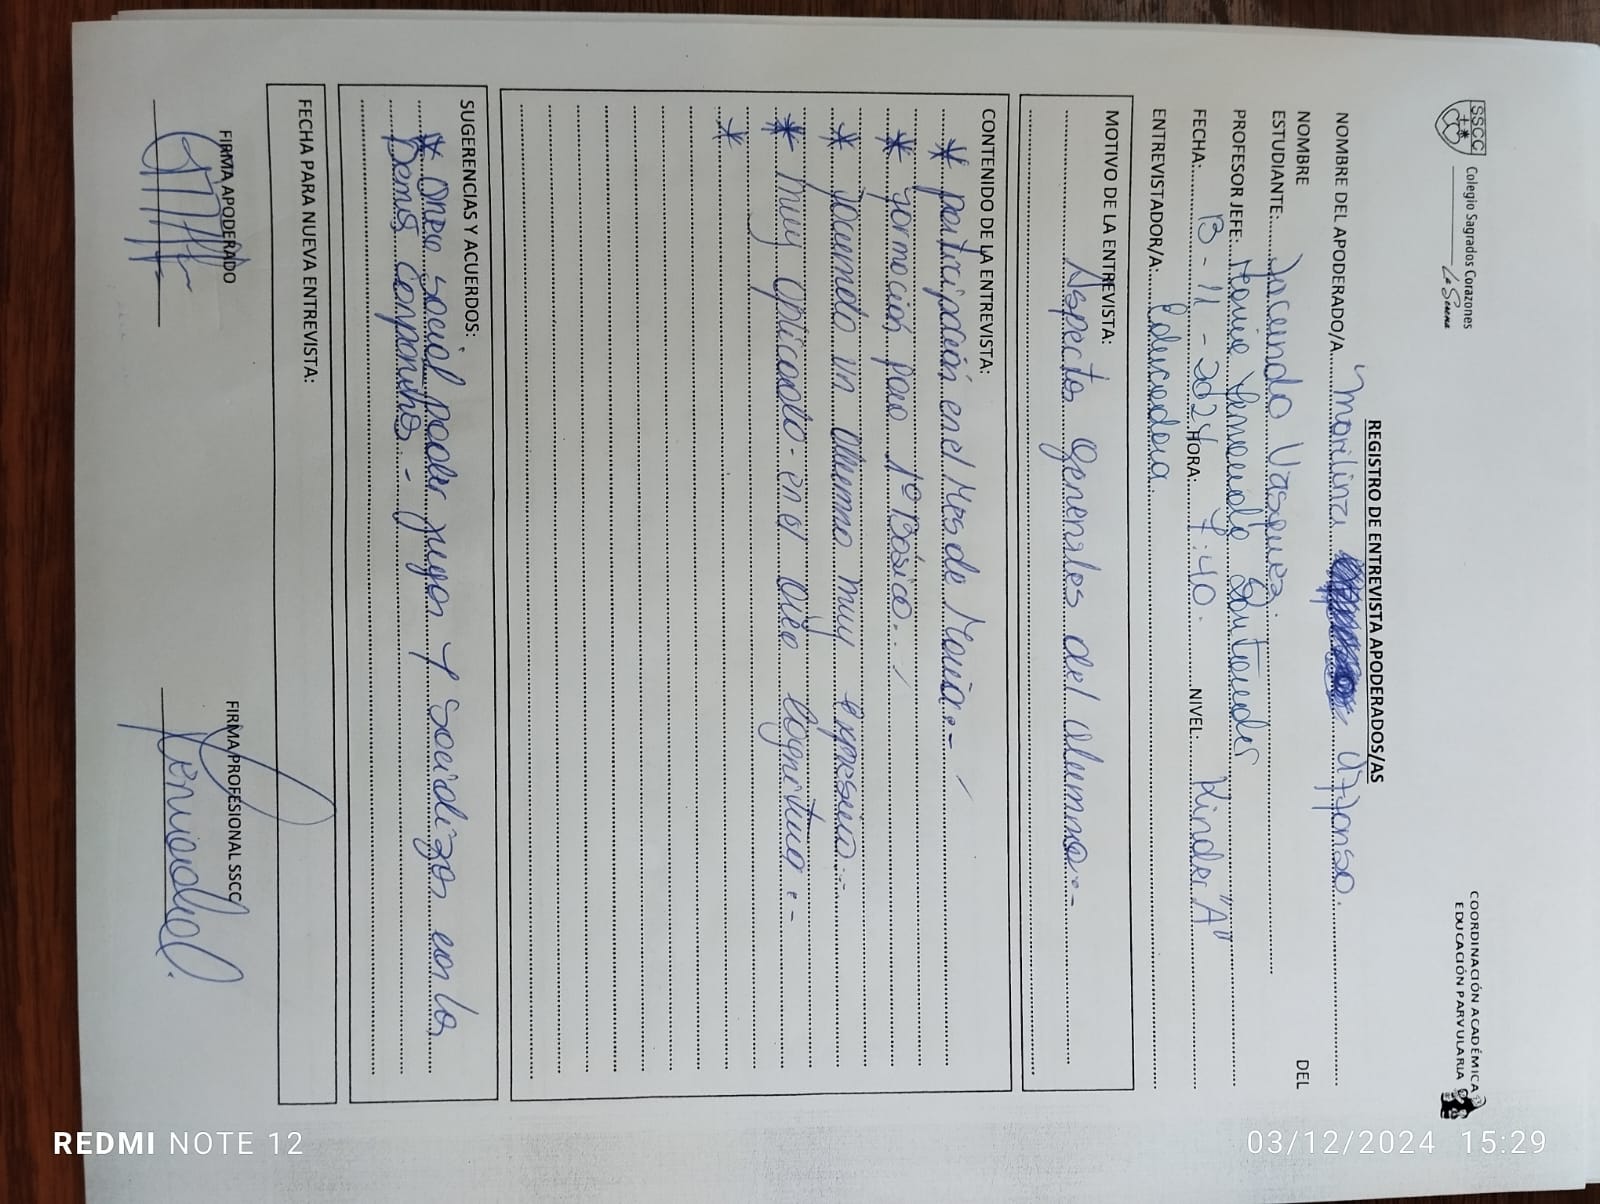 SSCC
Colegio Sagrados Corazones
La Serena
COORDINACIÓN ACADÉMICA
EDUCACIÓN PARVULARIA
REGISTRO DE ENTREVISTA APODERADOS/AS
NOMBRE DEL APODERADO/A Affonso.
NOMBRE DEL
ESTUDIANTE: Vasquez.
PROFESOR JEFE: Santander
FECHA: 13-11-2024 HORA: 7:40. NIVEL: Kinder "A"
ENTREVISTADOR/A: Educadora.
MOTIVO DE LA ENTREVISTA:
Aspectos Generales del alumno.-
CONTENIDO DE LA ENTREVISTA:
* participación en el Mes de María.-
* formación para 1º Básico.-
* un alumno muy expresivo.-
* muy aplicado en el area cognitiva.-
*
SUGERENCIAS Y ACUERDOS:
* area social poder jugar y socializar con los
Demás
FECHA PARA NUEVA ENTREVISTA:
FIRMA APODERADO
FIRMA PROFESIONAL SSCC
REDMI NOTE 12
03/12/2024 15:29